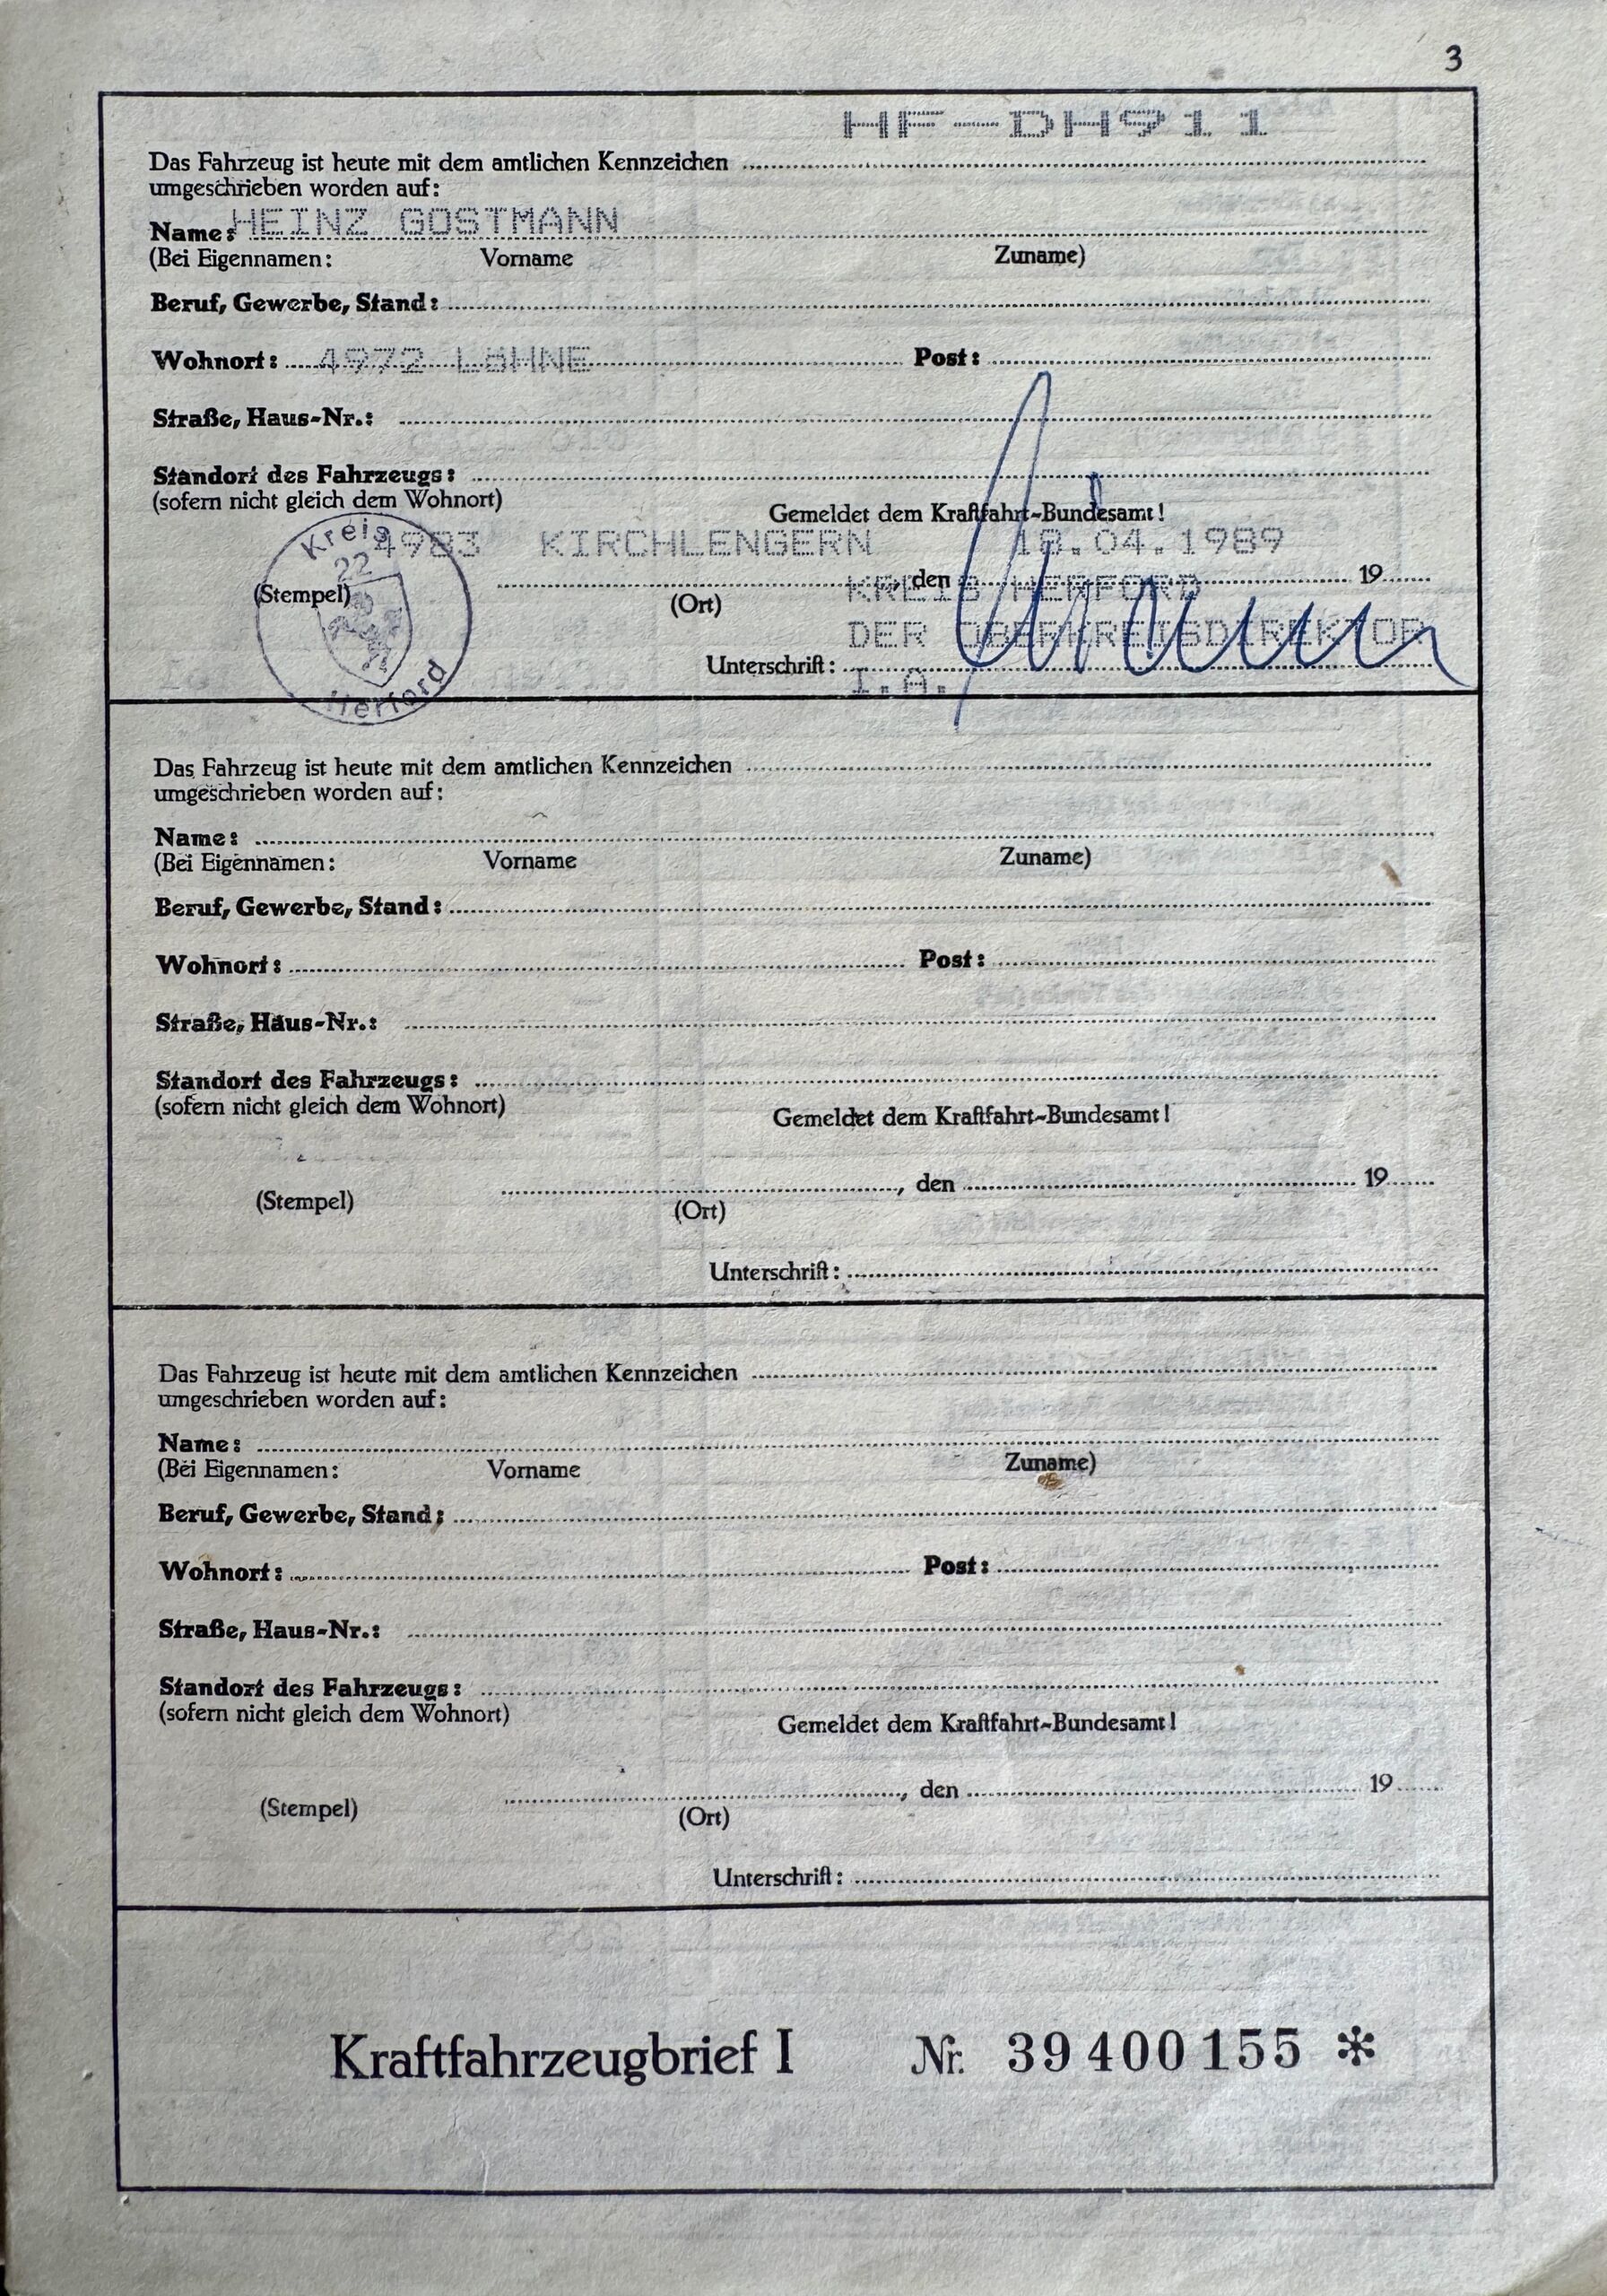 3
HF-DH911
Das Fahrzeug ist heute mit dem amtlichen Kennzeichen
umgeschrieben worden auf:
Name: HEINZ GOSTMANN
(Bei Eigennamen: Vorname Zuname)
Beruf, Gewerbe, Stand:
Wohnort: 4972 LÖHNE Post:
Straße, Haus-Nr.:
Standort des Fahrzeugs:
(sofern nicht gleich dem Wohnort)
Gemeldet dem Kraftfahrt-Bundesamt!
Kreis
22
Herford
4983 KIRCHLENGERN 18.04.1989
(Stempel) , den 19
(Ort)
KREIS HERFORD
DER OBERKREISDIREKTOR
Unterschrift:
I.A.
Das Fahrzeug ist heute mit dem amtlichen Kennzeichen
umgeschrieben worden auf:
Name:
(Bei Eigennamen: Vorname Zuname)
Beruf, Gewerbe, Stand:
Wohnort: Post:
Straße, Haus-Nr.:
Standort des Fahrzeugs:
(sofern nicht gleich dem Wohnort)
Gemeldet dem Kraftfahrt-Bundesamt!
(Stempel) , den 19
(Ort)
Unterschrift:
Das Fahrzeug ist heute mit dem amtlichen Kennzeichen
umgeschrieben worden auf:
Name:
(Bei Eigennamen: Vorname Zuname)
Beruf, Gewerbe, Stand:
Wohnort: Post:
Straße, Haus-Nr.:
Standort des Fahrzeugs:
(sofern nicht gleich dem Wohnort)
Gemeldet dem Kraftfahrt-Bundesamt!
(Stempel) , den 19
(Ort)
Unterschrift:
Kraftfahrzeugbrief I Nr. 39 400 155 *